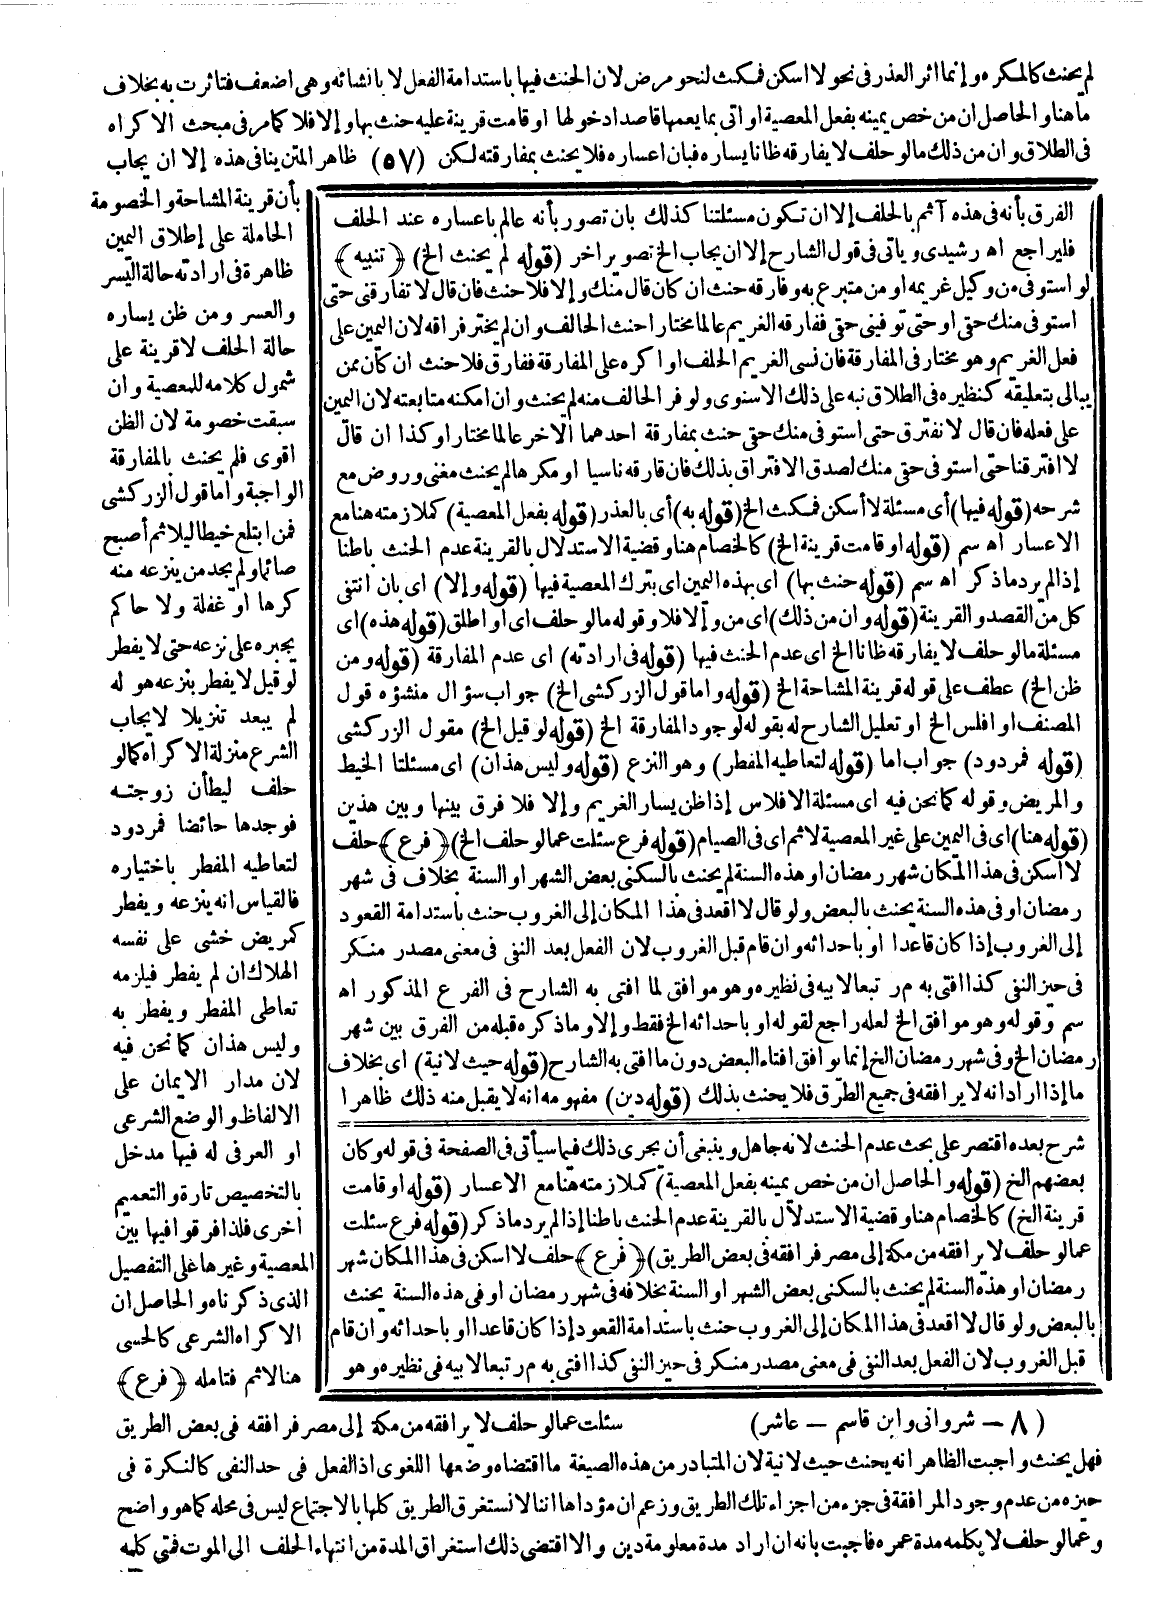 لم يحنث كالمكره وإنما اثر العذر فى نحو لا اسكن فمكث لنحو مرض لان الحنث فيها باستدامة الفعل لا بانشائه وهى اضعف فتاثرت به بخلاف
ما هنا والحاصل ان من خص يمينه بفعل المعصية او اتى بما يعمها قاصدا دخولها او قامت قرينة عليه حنث بها وإلا فلا كما مر فى مبحث الاكراه
فى الطلاق وان من ذلك ما لو حلف لا يفارقه ظانا يساره فبان اعساره فلا يحنث بمفارقته لكن (٥٧) ظاهر المتن ينافى هذه إلا ان يجاب
بأن قرينة المشاحة والخصومة
الحاملة على إطلاق اليمين
ظاهرة فى ارادته حالة اليسر
والعسر ومن ظن يساره
حالة الحلف لا قرينة على
شمول كلامه للمعصية وان
سبقت خصومة لان الظن
اقوى فلم يحنث بالمفارقة
الواجبة وأما قول الزركشى
فمن ابتلع خيطا ليلا ثم أصبح
صائما ولم يجد من ينزعه منه
كرها او غفلة ولا حاكم
يجبره على نزعه حتى لا يفطر
لو قيل لا يفطر بنزعه هو له
لم يبعد تنزيلا لايجاب
الشرع منزلة الاكراه كما لو
حلف ليطأن زوجته
فوجدها حائضا فمردود
لتعاطيه المفطر باختياره
فالقياس انه ينزعه ويفطر
كمريض خشى على نفسه
الهلاك ان لم يفطر فيلزمه
تعاطى المفطر ويفطر به
وليس هذان كما نحن فيه
لان مدار الايمان على
الالفاظ والوضع الشرعى
او العرفى له فيها مدخل
بالتخصيص تارة والتعميم
اخرى فلذا فرقوا فيها بين
المعصية وغيرها على التفصيل
الذى ذكرناه والحاصل ان
الاكراه الشرعى كالحسى
هنا لا ثم فتامله ﴿فرع﴾
الفرق بأنه فى هذه آثم بالحلف إلا ان تكون مسئلتنا كذلك بان تصور بأنه عالم باعساره عند الحلف
فليراجع اه رشيدى وياتى فى قول الشارح إلا ان يجاب الخ تصوير اخر (قوله لم يحنث الخ) ﴿تنبيه﴾
لو استوفى من وكيل غريمه او من متبرع به وفارقه حنث ان كان قال منك وإلا فلا حنث فان قال لا تفارقنى حتى
استوفى منك حقى او حتى توفينى حقى ففارقه الغريم عالما مختارا حنث الحالف وان لم يختر فراقه لان اليمين على
فعل الغريم وهو مختار فى المفارقة فان نسى الغريم الحلف او اكره على المفارقة ففارق فلا حنث ان كان ممن
يبالى بتعليقه كنظيره فى الطلاق نبه على ذلك الاسنوى ولو فر الحالف منه لم يحنث وان امكنه متابعته لان اليمين
على فعله فان قال لا نفترق حتى استوفى منك حقى حنث بمفارقة احدهما الاخر عالما مختارا وكذا ان قال
لا افترقنا حتى استوفى حقى منك لصدق الافتراق بذلك فان فارقه ناسيا او مكرها لم يحنث مغنى وروض مع
شرحه (قوله فيها) أى مسئلة لا أسكن فمكث الخ (قوله به) أى بالعذر (قوله بفعل المعصية) كملازمته هنا مع
الاعسار اه سم (قوله او قامت قرينة الخ) كالخصام هنا وقضية الاستدلال بالقرينة عدم الحنث باطنا
إذا لم يرد ما ذكر اه سم (قوله حنث بها) اى بهذه اليمين اى بترك المعصية فيها (قوله وإلا) اى بان انتفى
كل من القصد والقرينة (قوله وان من ذلك) اى من وإلا فلا وقوله ما لو حلف اى او اطلق (قوله هذه) اى
مسئلة ما لو حلف لا يفارقه ظانا الخ اى عدم الحنث فيها (قوله فى ارادته) اى عدم المفارقة (قوله ومن
ظن الخ) عطف على قوله قرينة المشاحة الخ (قوله واما قول الزركشى الخ) جواب سؤال منشؤه قول
المصنف او افلس الخ او تعليل الشارح له بقوله لوجود المفارقة الخ (قوله لو قيل الخ) مقول الزركشى
(قوله فمردود) جواب اما (قوله لتعاطيه المفطر) وهو النزع (قوله وليس هذان) اى مسئلتا الخيط
والمريض وقوله كما نحن فيه اى مسئلة الافلاس إذا ظن يسار الغريم وإلا فلا فرق بينها وبين هذين
(قوله هنا) اى فى اليمين على غير المعصية لا ثم اى فى الصيام (قوله فرع سئلت عما لو حلف الخ) ﴿فرع﴾ حلف
لا اسكن فى هذا المكان شهر رمضان او هذه السنة لم يحنث بالسكنى بعض الشهر او السنة بخلاف فى شهر
رمضان او فى هذه السنة يحنث بالبعض ولو قال لا اقعد فى هذا المكان إلى الغروب حنث باستدامة القعود
إلى الغروب إذا كان قاعدا او باحداثه وان قام قبل الغروب لان الفعل بعد النفى فى معنى مصدر منكر
فى حيز النفى كذا افتى به م ر تبعا لابيه فى نظيره وهو موافق لما افتى به الشارح فى الفرع المذكور اه
سم وقوله وهو موافق الخ لعله راجع لقوله او باحداثه الخ فقط وإلا وما ذكره قبله من الفرق بين شهر
رمضان الخ وفى شهر رمضان الخ إنما يوافق افتاء البعض دون ما افتى به الشارح (قوله حيث لا نية) اى بخلاف
ما إذا اراد انه لا يرافقه فى جميع الطرق فلا يحنث بذلك (قوله دين) مفهومه انه لا يقبل منه ذلك ظاهرا
شرح بعده اقتصر على بحث عدم الحنث لانه جاهل وينبغى أن يجرى ذلك فيما سيأتى فى الصفحة فى قوله وكان
بعضهم الخ (قوله والحاصل ان من خص يمينه بفعل المعصية) كملازمته هنا مع الاعسار (قوله او قامت
قرينة الخ) كالخصام هنا وقضية الاستدلال بالقرينة عدم الحنث باطنا إذا لم يرد ما ذكر (قوله فرع سئلت
عما لو حلف لا يرافقه من مكة إلى مصر فرافقه فى بعض الطريق) ﴿فرع﴾ حلف لا اسكن فى هذا المكان شهر
رمضان او هذه السنة لم يحنث بالسكنى بعض الشهر او السنة بخلافه فى شهر رمضان او فى هذه السنة يحنث
بالبعض ولو قال لا اقعد فى هذا المكان إلى الغروب حنث باستدامة القعود إذا كان قاعدا او باحداثه وان قام
قبل الغروب لان الفعل بعد النفى فى معنى مصدر منكر فى حيز النفى كذا افتى به م ر تبعا لابيه فى نظيره وهو
(٨ – شروانى وابن قاسم – عاشر)
سئلت عما لو حلف لا يرافقه من مكة إلى مصر فرافقه فى بعض الطريق
فهل يحنث واجبت الظاهر انه يحنث حيث لا نية لان المتبادر من هذه الصيغة ما اقتضاه وضعها اللغوى اذ الفعل فى حد النفى كالنكرة فى
حيزه من عدم وجود المرافقة فى جزء من اجزاء تلك الطريق وزعم ان مؤداها اننا لا نستغرق الطريق كلها بالاجتماع ليس فى محله كما هو واضح
وعما لو حلف لا يكلمه مدة عمره فاجبت بانه ان اراد مدة معلومة دين والا اقتضى ذلك استغراق المدة من انتهاء الحلف الى الموت فمتى كلمه